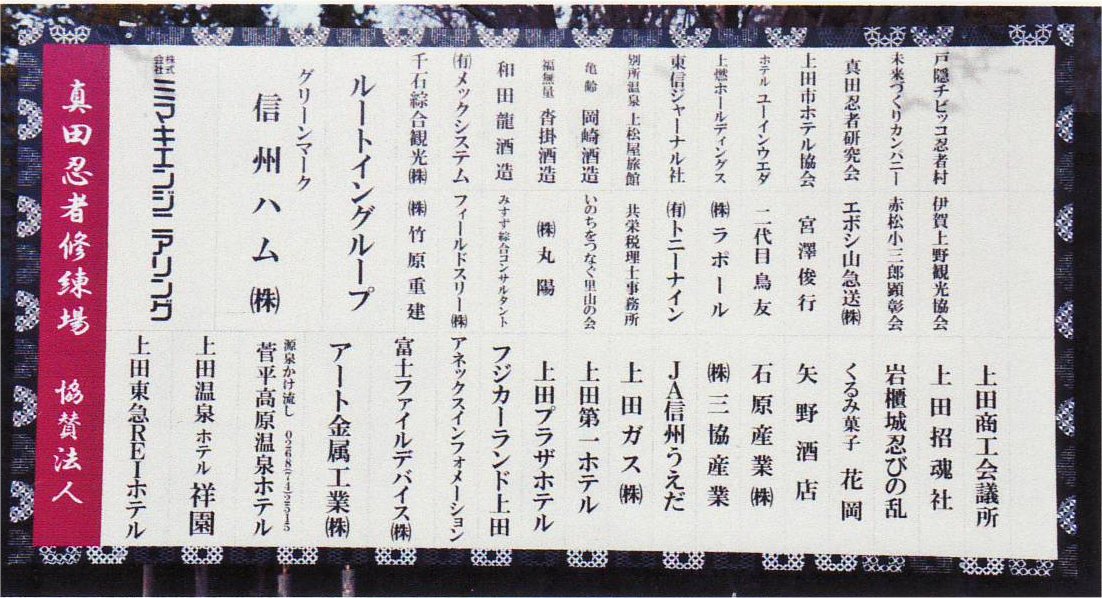 戸隠チビッコ忍者村
未来づくりカンパニー
真田忍者研究会
上田市ホテル協会
ホテル ユーインウエダ
上燃ホールディングス
東信ジャーナル社
別所温泉 上松屋旅館
亀齢 岡崎酒造
福無量 沓掛酒造
和田龍酒造
㈲メックシステム
千石綜合観光㈱
ルートイングループ
グリーンマーク
信州ハム㈱
株式会社ミマキエンジニアリング
伊賀上野観光協会
赤松小三郎顕彰会
エボシ山急送㈱
宮澤俊行
二代目鳥友
㈱ラポール
㈲トニーナイン
共栄税理士事務所
いのちをつなぐ里山の会
㈱丸陽
みすず綜合コンサルタント
フィールドスリー㈱
㈱竹原重建
上田商工会議所
上田招魂社
岩櫃城忍びの乱
くるみ菓子 花岡
矢野酒店
石原産業㈱
㈱三協産業
JA信州うえだ
上田ガス㈱
上田第一ホテル
上田プラザホテル
フジカーランド上田
アネックスインフォメーション
富士ファイルデバイス㈱
アート金属工業㈱
源泉かけ流し 0268(74)2515
菅平高原温泉ホテル
上田温泉 ホテル祥園
上田東急REIホテル
真田忍者修練場 協賛法人